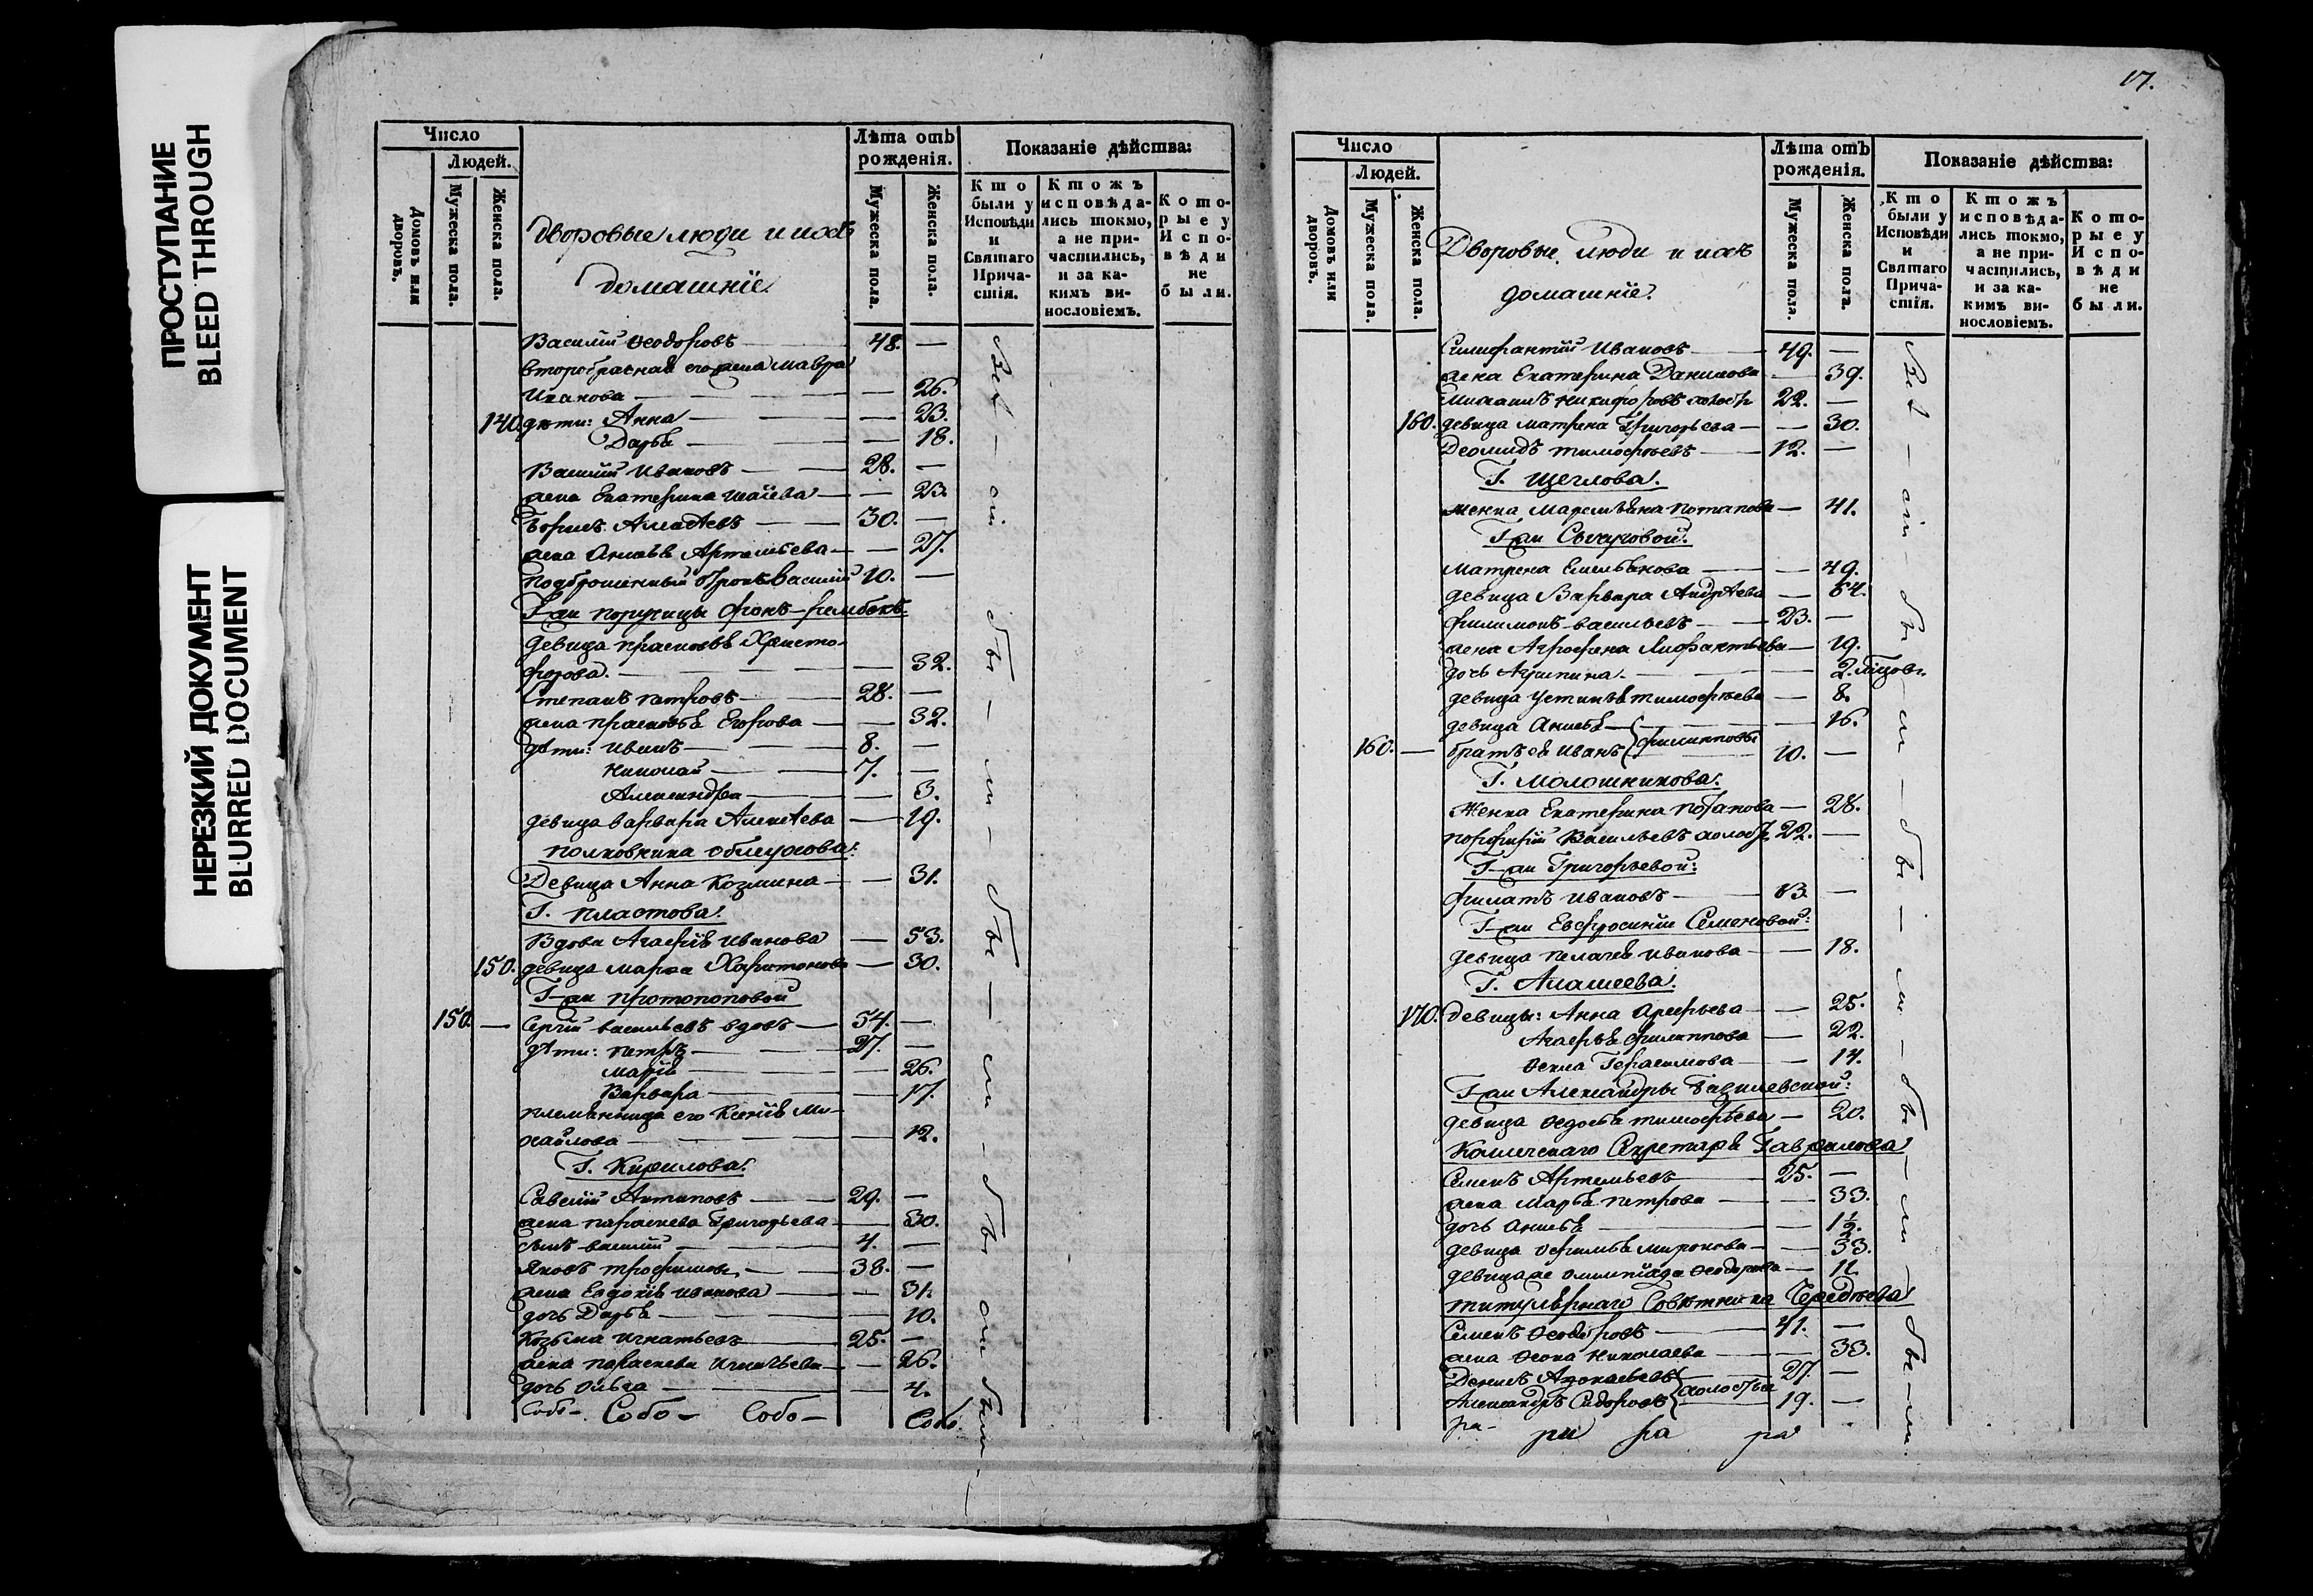 ПРОСТУПАНИЕ
BLEED THROUGH
НЕРЕЗКИЙ ДОКУМЕНТ
BLURRED DOCUMENT
Число
Людей.
Домовъ или дворовъ.
Мужеска пола.
Женска пола.
Дворовые люди и ихъ
домашніе.
Лѣта отъ рожденія.
Мужеска пола.
Женска пола.
Показаніе дѣйства:
Кто были у Исповѣди и Святаго Причастія.
Ктожъ исповѣдались токмо, а не причастились, и за какимъ винословіемъ.
Которые у Исповѣди не были.
Василій Ѳеодоровъ — 48. —
второбрачная его жена Мавра
Иванова — — 26.
140. дѣти: Анна — — 23.
Дарья — — 18.
Василій Ивановъ — 28. —
жена Екатерина Исаіева — — 23.
Борисъ Алексѣевъ — 30. —
жена Анисья Артемьева — — 27.
подброшенный Василій 10. —
Г-жи поручицы фонъ-
девица Прасковья Христо-
форова. — — 32.
Степанъ Петровъ — 28. —
жена Прасковья Егорова — — 32.
дѣти: Иванъ — 8. —
Николай — 7. —
Александра — — 3.
девица Варвара Алексѣева — 19.
полковника Облеухова:
Девица Анна Козмина — — 31.
Г. Пластова:
Вдова Агафія Иванова — 53.
150. девица Марѳа Харитонова — 30.
Г-жи Протопоповой
150. — Сергій Васильевъ вдовъ — 54. —
дѣти: Петръ — 27. —
Марія — — 26.
Варвара — — 17.
племянница его Ксенія Ми-
хайлова — — 12.
Г. Кирилова:
Савелій Антиповъ — 29. —
жена Параскева Григорьева — 30.
сынъ Василій — 4. —
Яковъ Трофимовъ — 38. —
жена Евдокія Иванова — — 31.
дочь Дарья — — 10.
Козьма Игнатьевъ — 25. —
жена Параскева Игнатьева — — 26.
дочь Ольга — — 4.
Собо- Собо- Собо- Собо.
Всѣ — они — бы — ли — бы — ли — бы они были
17.
Число
Людей.
Домовъ или дворовъ.
Мужеска пола.
Женска пола.
Дворовые люди и ихъ
домашніе.
Лѣта отъ рожденія.
Мужеска пола.
Женска пола.
Показаніе дѣйства:
Кто были у Исповѣди и Святаго Причастія.
Ктожъ исповѣдались токмо, а не причастились, и за какимъ винословіемъ.
Которые у Исповѣди не были.
Ивановъ — 49. —
жена Екатерина Данилова — 39.
Михаилъ Никифоровъ холостъ 22. —
160. девица Матрена Григорьева — — 30.
Деомидъ Тимофѣевъ — 12. —
Г. Щеглова:
женка Маремьяна Потапова — 41.
Г-жи
Матрена Емельянова — — 49.
девица Варвара Андрѣева — 64.
Филимонъ Васильевъ — 23. —
жена Агрофена — 19.
дочь Агрипина — — 2.
девица Устинья Тимофѣева — 8.
девица Анисья — — 16.
160. — братъ ея Иванъ Филиповы 10. —
Г. Молошникова:
Женка Екатерина — 28.
Порфирій Васильевъ холостъ 22. —
Г-жи Григорьевой:
Филатъ Ивановъ — 13. —
Г-жи Евфросиніи Семеновой:
девица Пелагея Иванова — — 18.
Г.
170. девицы: Анна Арефьева — — 25.
Агафья Филиппова — 22.
Ѳекла Герасимова — — 14.
Г-жи Александры
девица Ѳедосья Тимофѣева — 20.
Коллежскаго Секретаря Гаврилова:
Семенъ Артемьевъ — 25. —
жена Марья Петрова — — 33.
дочь Анисья — — 1½.
девица Миронова — — 33.
девица же Олимпіада Ѳеодорова — 11.
Титулярнаго Совѣтника
Семенъ Ѳеодоровъ — 41. —
жена Николаева — — 33.
Денисъ 27. —
Александръ Сидоровъ холостые 19. —
ра- ра ра ра
Всѣ — они — бы — ли — бы — ли — бы — ли — бы — ли.